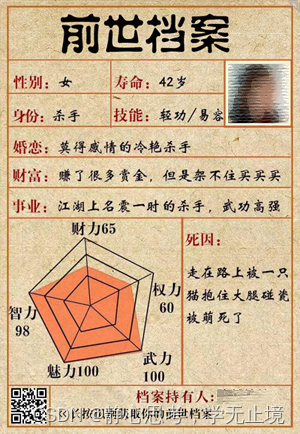 前世档案
性别：女 寿命：42岁
身份：杀手 技能：轻功/易容
婚恋：莫得感情的冷艳杀手
财富：赚了很多黄金，但是架不住买买买
事业：江湖上名震一时的杀手，武功高强
财力65
权力
60
武力
100
魅力100
智力
98
死因：
走在路上被一只
猫抱住大腿碰瓷
被萌死了
档案持有人：
长按识别获取你的前世档案